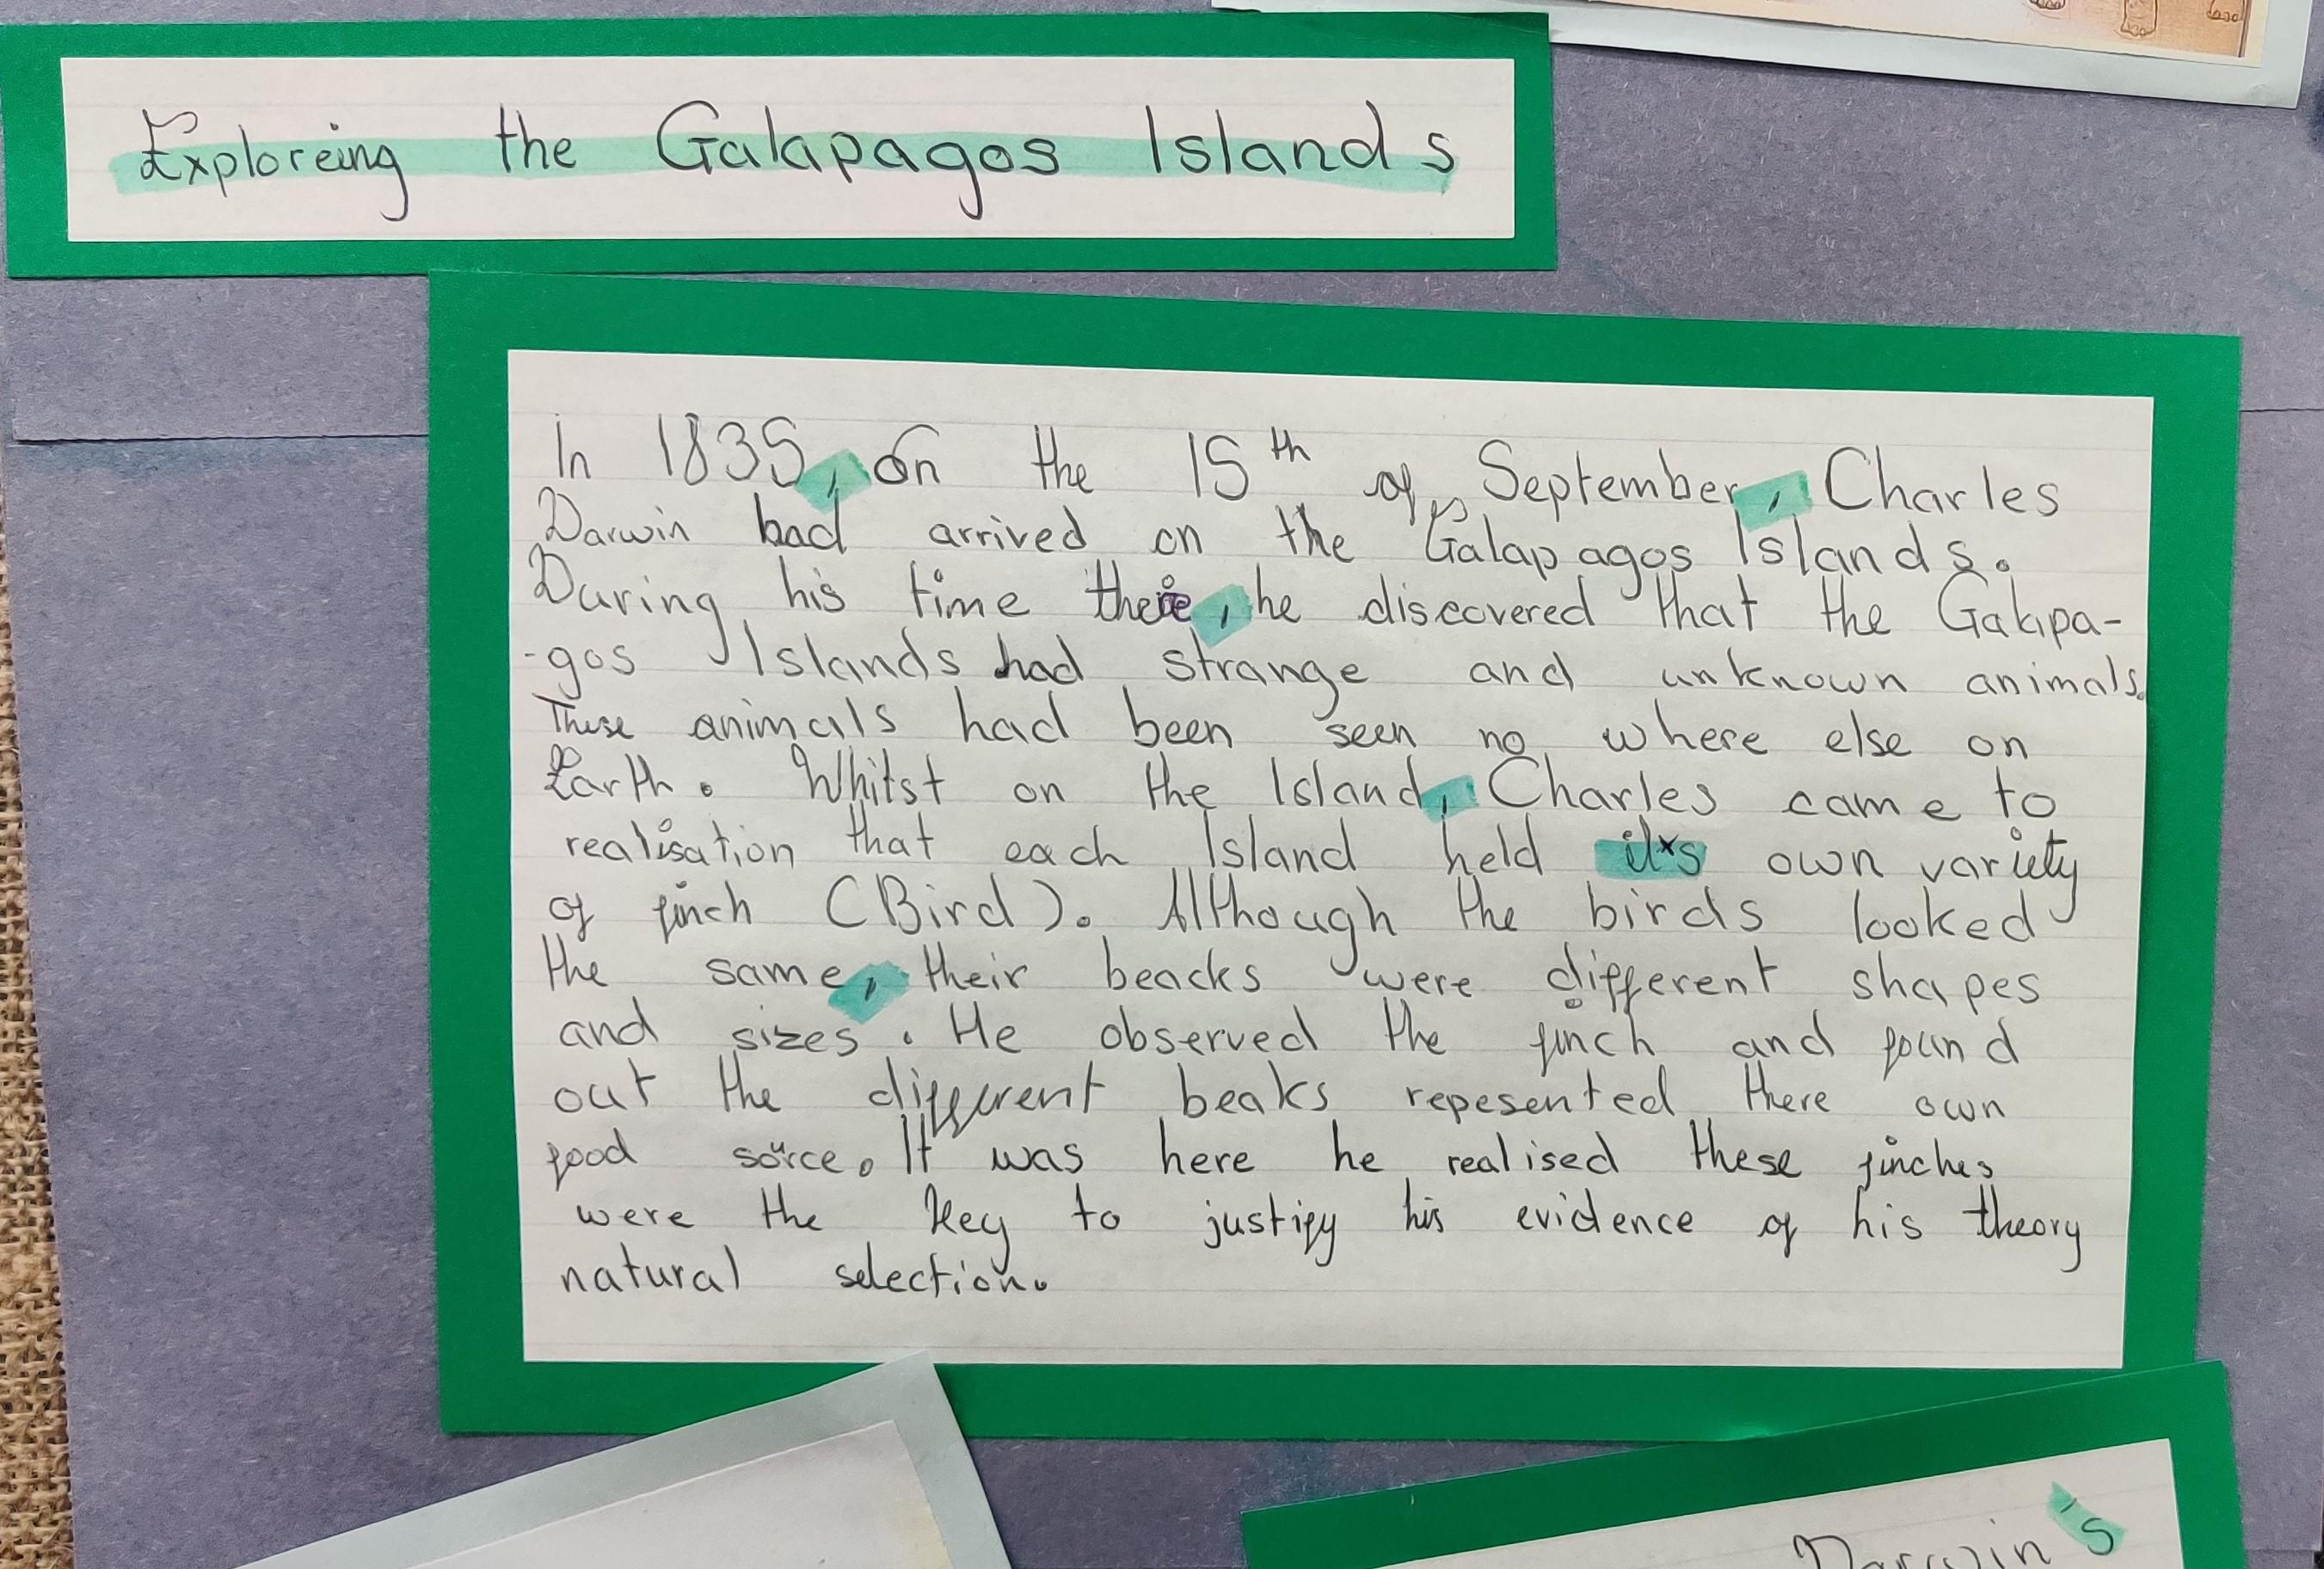 Exploreing the Galapagos Islands
In 1835, on the 15th of September, Charles
Darwin had arrived on the Galapagos Islands.
During his time there, he discovered that the Galapa-
-gos Islands had strange and unknown animals.
These animals had been seen no where else on
Earth. Whitst on the Island, Charles came to
realisation that each Island held its own variety
of finch (Bird). Although the birds looked
the same, their beacks were different shapes
and sizes. He observed the finch and found
out the different beaks repesented there own
food source. It was here he realised these finches
were the key to justify his evidence of his theory
natural selection.
Darwin's